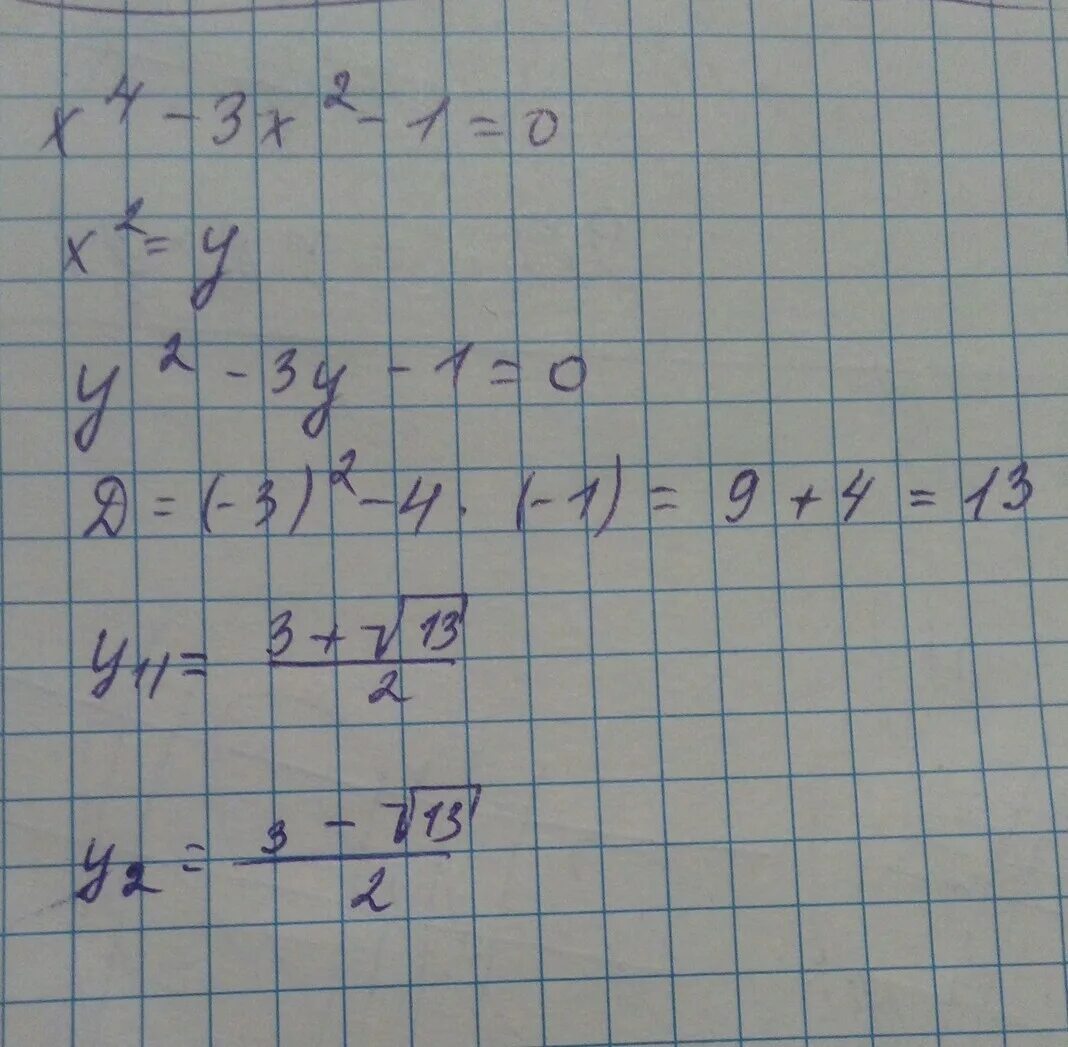 x⁴ - 3x² - 1 = 0
x² = y
y² - 3y - 1 = 0
D = (-3)² - 4 · (-1) = 9 + 4 = 13
y₁₁ = (3 + √13)/2
y₂ = (3 - √13)/2